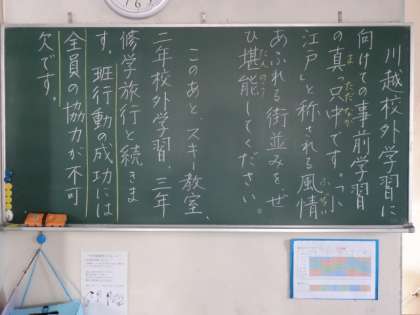 川越校外学習に
向けての事前学習
の真っ只中です。「小
江戸」と称される風情
あふれる街並みを、ぜ
ひ堪能してください。
このあと、スキー教室、
二年校外学習、三年
修学旅行と続きま
す。班行動の成功には
全員の協力が不可
欠です。